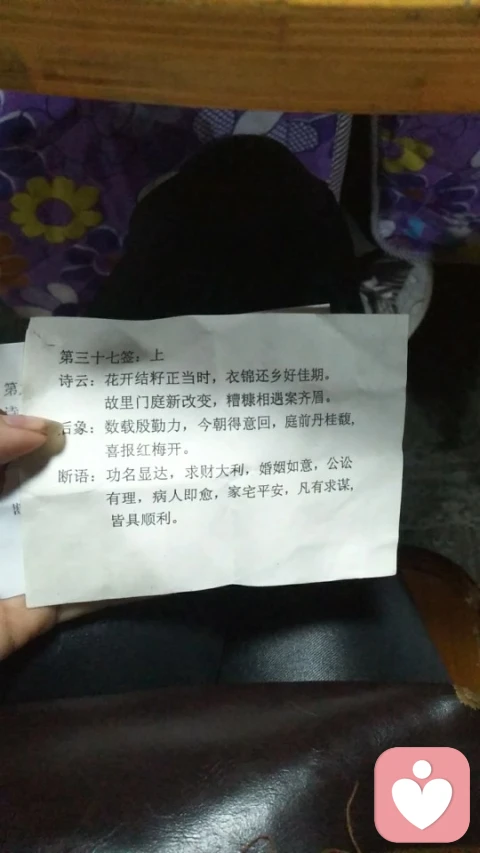 第三十七签：上
诗云：花开结籽正当时，衣锦还乡好佳期。
故里门庭新改变，糟糠相遇案齐眉。
后象：数载殷勤力，今朝得意回，庭前丹桂馥，
喜报红梅开。
断语：功名显达，求财大利，婚姻如意，公讼
有理，病人即愈，家宅平安，凡有求谋，
皆具顺利。
第